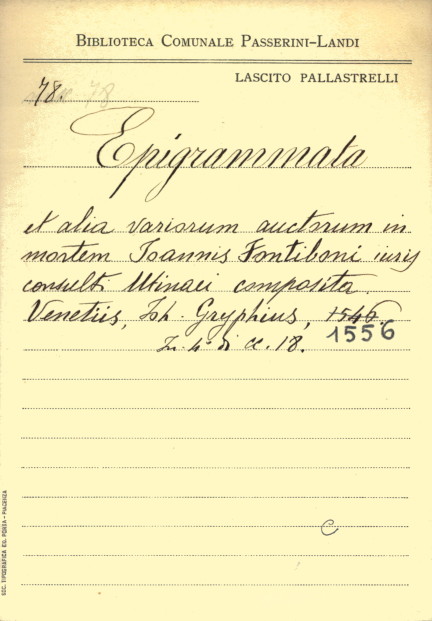 BIBLIOTECA COMUNALE PASSERINI-LANDI
LASCITO PALLASTRELLI
78.
Epigrammata
et alia variorum auctorum in
mortem Joannis Fontiboni iuris
consulti Utinaei composita.
Venetiis, Joh. Gryphius, 1546.
1556
In 4° di cc. 18.
C
SOC. TIPOGRAFICA EX. PORTA - PIACENZA